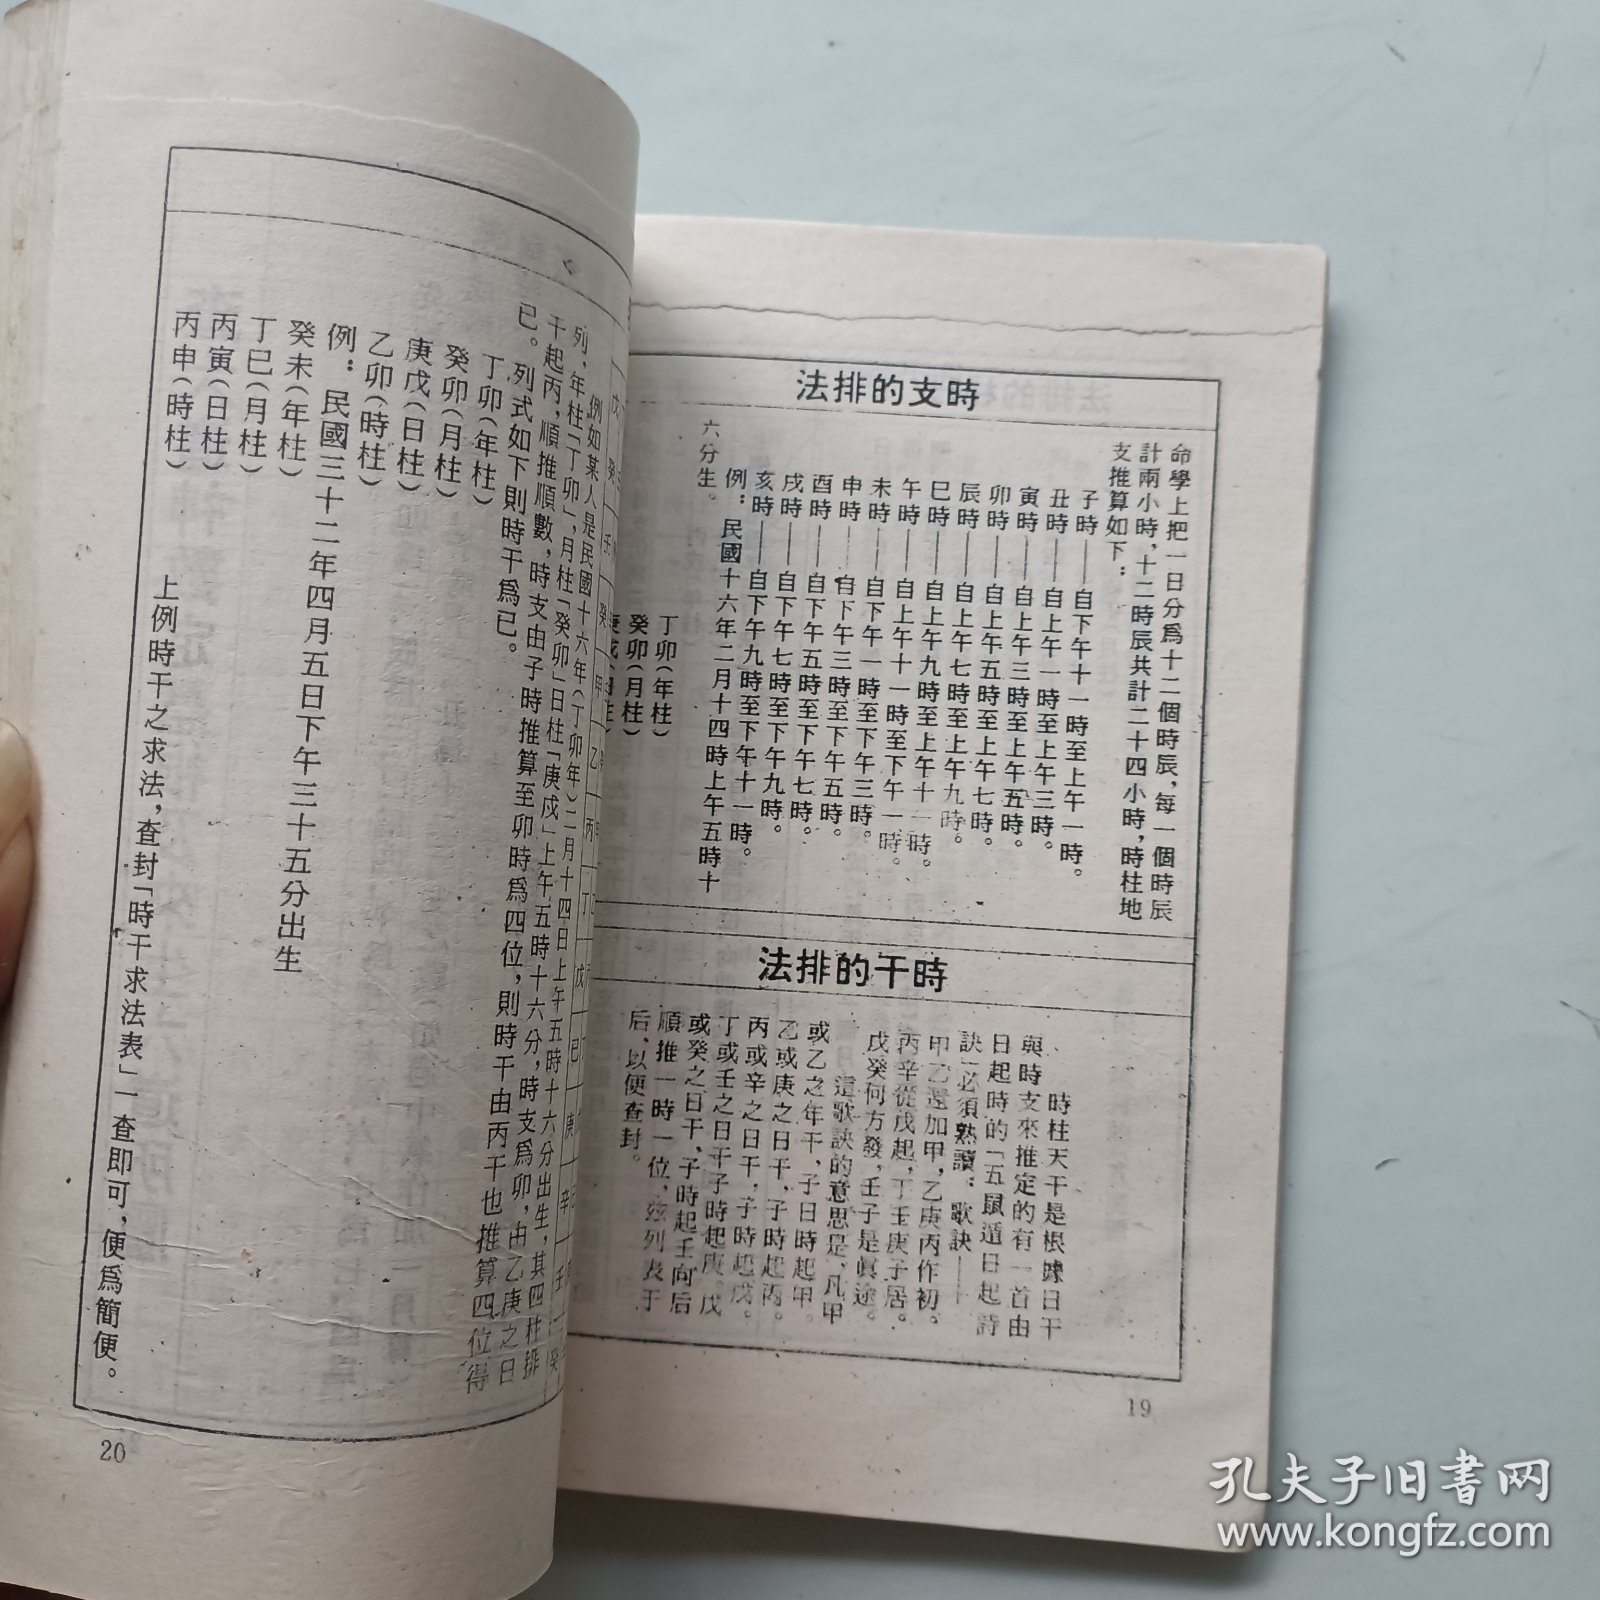 法排的支時
命學上把一日分爲十二個時辰，每一個時辰
計兩小時，十二時辰共計二十四小時，時柱地
支推算如下：
子時——自下午十一時至上午一時。
丑時——自上午一時至上午三時。
寅時——自上午三時至上午五時。
卯時——自上午五時至上午七時。
辰時——自上午七時至上午九時。
巳時——自上午九時至上午十一時。
午時——自上午十一時至下午一時。
未時——自下午一時至下午三時。
申時——自下午三時至下午五時。
酉時——自下午五時至下午七時。
戌時——自下午七時至下午九時。
亥時——自下午九時至下午十一時。
例：民國十六年二月十四時上午五時十
六分生。
丁卯（年柱）
癸卯（月柱）
庚戌（日柱）
法排的干時
時柱天干是根據日干
與時支來推定的有一首由
日起時的「五鼠遁日起詩
訣」必須熟讀：歌訣——
甲乙還加甲，乙庚丙作初。
丙辛從戊起，丁壬庚子居。
戊癸何方發，壬子是眞途。
這歌訣的意思是，凡甲
或乙之年干，子日時起甲。
乙或庚之日干，子時起丙。
丙或辛之日干，子時起戊。
丁或壬之日干子時起庚。戊
或癸之日干，子時起壬向后
順推一時一位，兹列表于
后，以便查封。
19
戊 癸 壬 癸 甲 乙 丙 丁 戊 己 庚 辛 壬 癸
例如某人是民國十六年（丁卯年）二月十四日上午五時十六分出生，其四柱排
列，年柱「丁卯」，月柱「癸卯」日柱「庚戍」上午五時十六分，時支爲卯，由乙庚之日
干起丙，順推順數，時支由子時推算至卯時爲四位，則時干由丙干也推算四位得
已。列式如下則時干爲已。
丁卯（年柱）
癸卯（月柱）
庚戊（日柱）
乙卯（時柱）
例：民國三十二年四月五日下午三十五分出生
癸未（年柱）
丁巳（月柱）
丙寅（日柱）
丙申（時柱）
上例時干之求法，查封「時干求法表」一查即可，便爲簡便。
20
孔夫子旧書网
www.kongfz.com